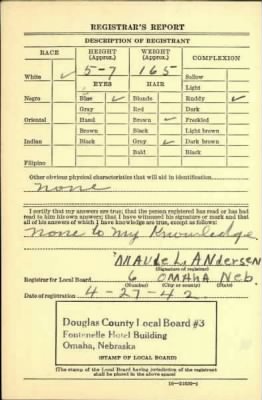 REGISTRAR'S REPORT
DESCRIPTION OF REGISTRANT
RACE HEIGHT (Approx.) WEIGHT (Approx.) COMPLEXION
White ✓ 5-7 165 Sallow
EYES HAIR Light
Negro Blue ✓ Blonde Ruddy ✓
Gray Red Dark
Oriental Hazel Brown ✓ Freckled
Brown Black Light brown
Indian Black Gray ✓ Dark brown
Filipino Bald Black
Other obvious physical characteristics that will aid in identification
None
I certify that my answers are true; that the person registered has read or has had
read to him his own answers; that I have witnessed his signature or mark and that
all of his answers of which I have knowledge are true, except as follows:
None to my Knowledge
Maude L. Andersen
(Signature of registrar)
Registrar for Local Board 6 OMAHA Neb.
(Number) (City or county) (State)
Date of registration 4-27-42
Douglas County Local Board #3
Fontenelle Hotel Building
Omaha, Nebraska
(STAMP OF LOCAL BOARD)
(The stamp of the Local Board having jurisdiction of the registrant
shall be placed in the above space)